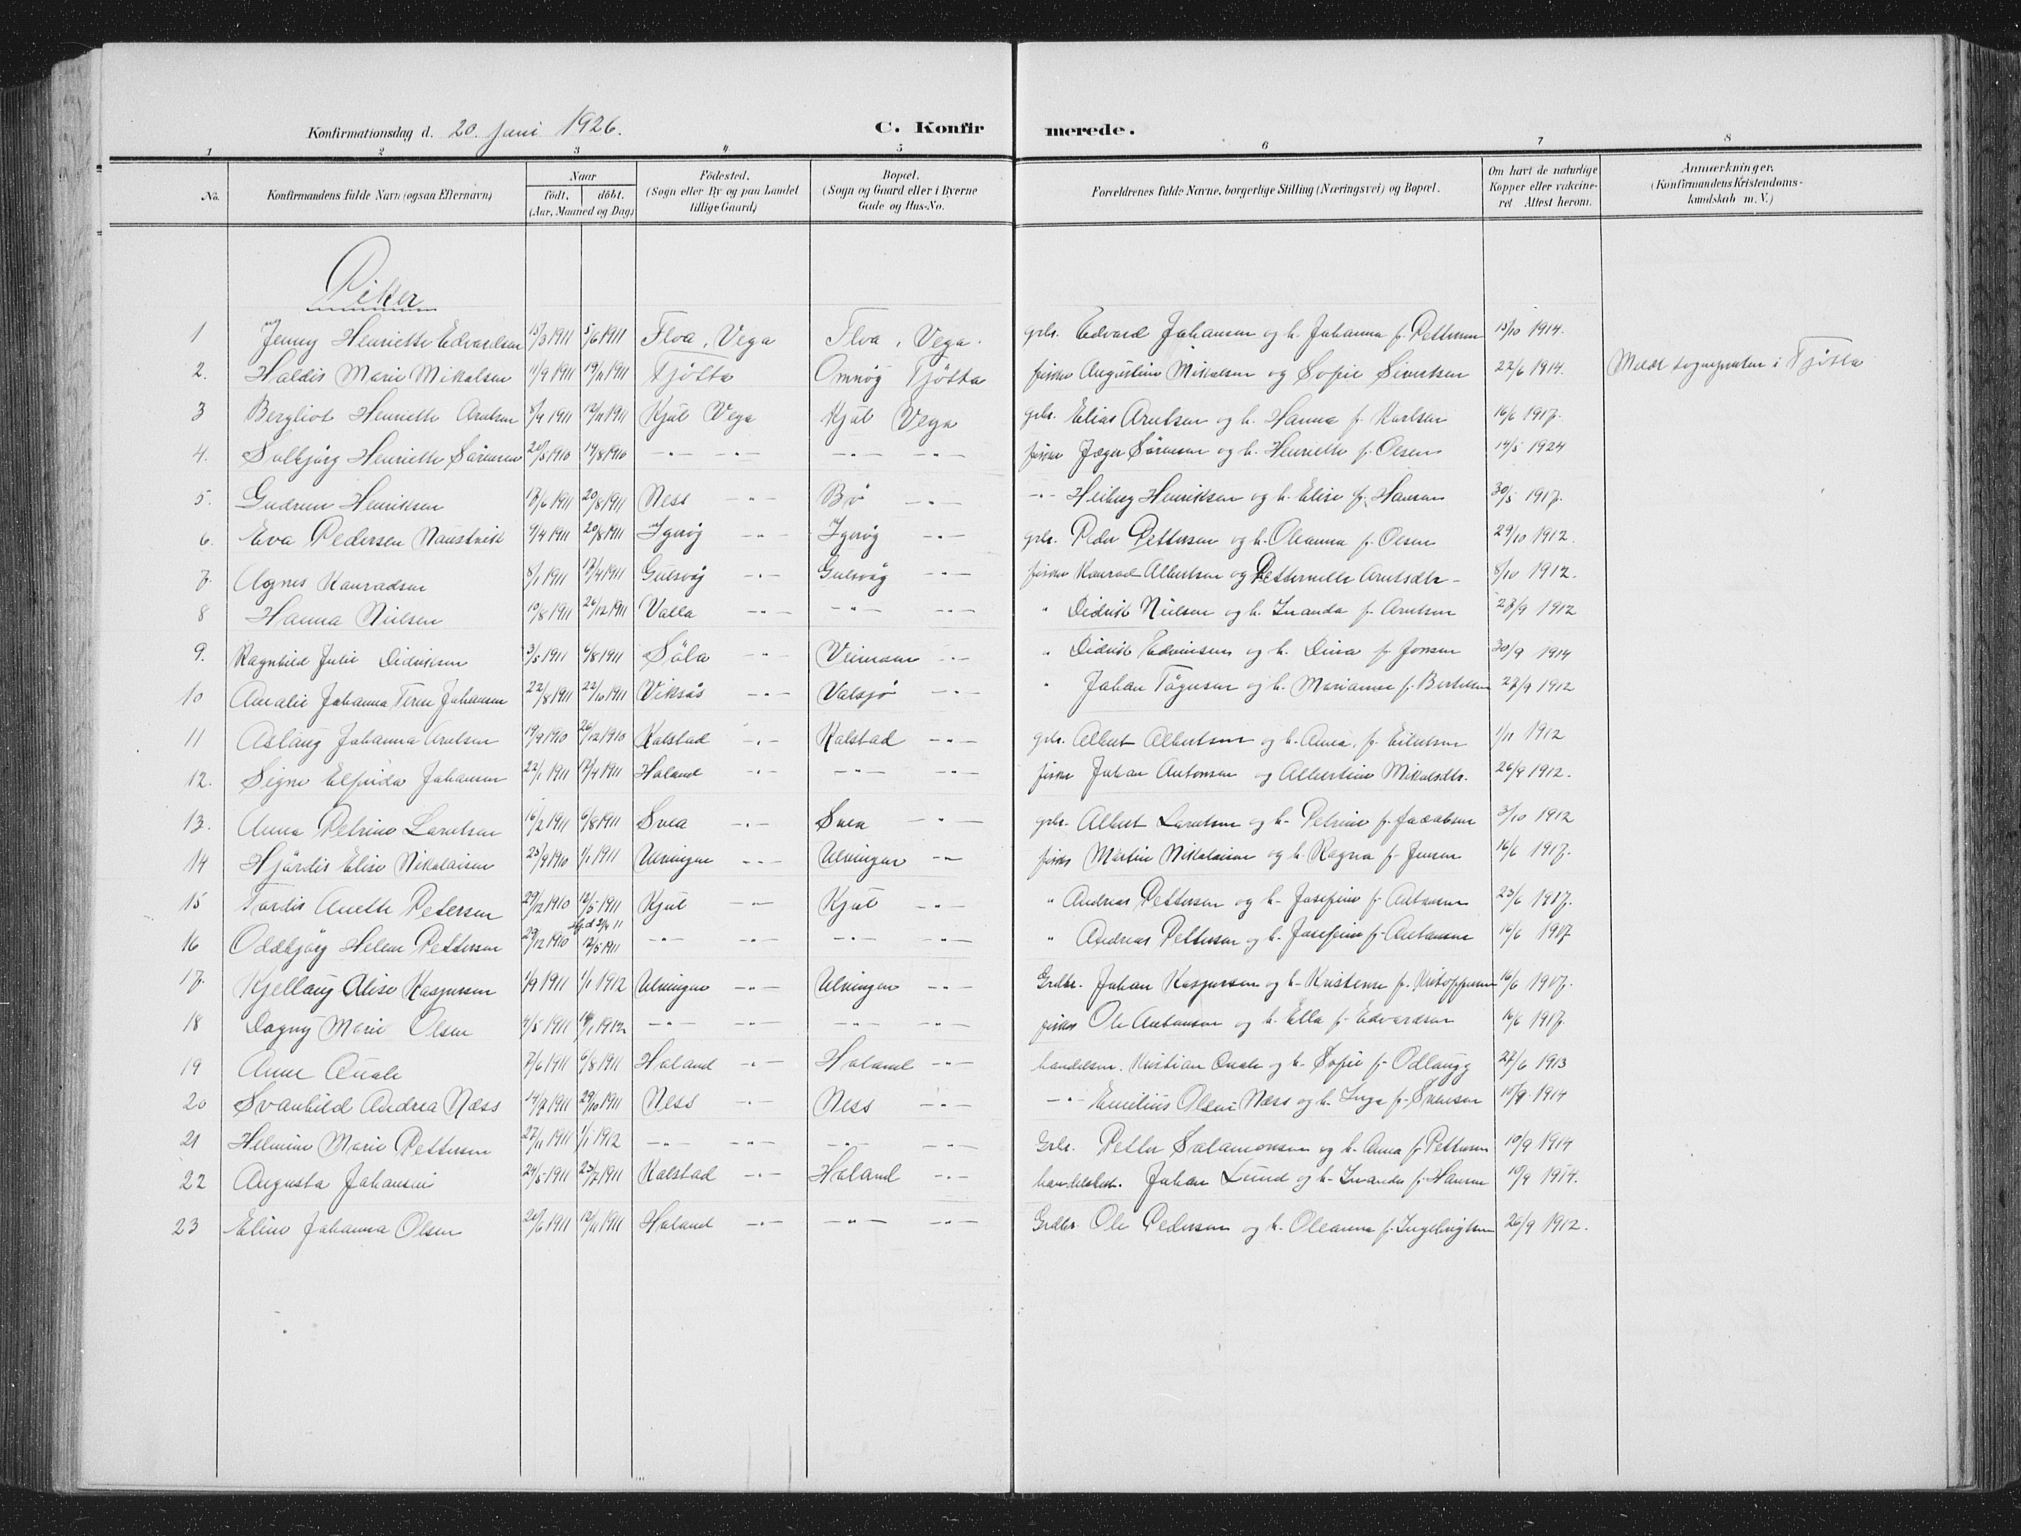 Konfirmationsdag d. 20. Juni 1926. C. Konfir merede.
1 2 3 4 5 6 7 8
No. Konfirmandens fulde Navn (ogsaa Efternavn) Naar født, døbt. (Aar, Maaned og Dag) Fødested. (Sogn eller By og paa Landet tillige Gaard) Bopæl. (Sogn og Gaard eller i Byerne Gade og Hus-No. Forældrenes fulde Navne, borgerlige Stilling (Næringsvei) og Bopæl. Om havt de naturlige Kopper eller vakcineret Attest herom. Anmærkninger. (Konfirmandens Kristendomskundskab m. V.)
Piker
1 Jenny Henriette Edvardsen 15/3 1911 5/6 1911 Floa, Vega Floa, Vega. grbr. Edvard Johansen og h. Johanna f. Pettersen 13/10 1914.
2. Haldis Marie Mikalsen 11/9 1911 19/11 1911 Tjötta Omnög Tjötta fisker Augustin Mikalsen og Sofie Sivertsen 22/6 1914. Meldt sogneprsten i Tjötta
3 Bergliot Henriette Arntsen 8/9 1911 12/11 1911 Kjul Vega Kjul Vega grbr. Elias Arntsen og h. Hanna f. Karlsen 16/6 1917.
4. Solbjörg Henriette Sörensen 20/5 1910 14/8 1910 -"- -"- -"- -"- fisker Jæger Sörensen og h. Henriette f. Olsen 14/5 1924
5. Gudrun Henriksen 17/6 1911 20/8 1911 Ness -"- Bö -"- -"- Heiberg Henriksen og h. Elise f. Hansen 30/5 1917.
6. Eva Pedersen Naustvik 4/4 1911 20/8 1911 Igeröy -"- Igeröy -"- grbr. Peder Pettersen og h. Oleanna f. Olsen 29/10 1912.
7. Agnes Konradsen 8/1 1911 17/4 1911 Gulsvåg -"- Gulsvåg -"- fisker Konrad Albertsen og Petternelle Arntsdtr - 8/10 1912.
8 Hanna Nielsen 10/8 1911 26/12 1911 Valla -"- -"- -"- " Didrik Nielsen og h. Inanda f. Arntsen 27/9 1912
9. Ragnhild Julie Didriksen 3/5 1911 6/8 1911 Söla -"- -"- " Didrik Edvinsen og h. Dina f. Jonsen 30/9 1914
10 Amalie Johanna Johansen 22/8 1911 22/10 1911 Viksås -"- Valsjö -"- " Johan Tögersen og h. Marianne f. Berthsen 27/9 1912
11 Aslaug Johanna Arntsen 19/9 1910 26/12 1910 Kalstad -"- Kalstad -"- grbr. Albert Albertsen og h. Anna, f. Eilertsen 1/11 1912
12. Signe Elfrida Johansen 22/1 1911 17/4 1911 Holand -"- -"- -"- fisker Johan Antonsen og Albertine Mikalsdtr. 26/9 1912.
13. Anna Petrine Lorntsen 16/2 1911 6/8 1911 Svea -"- Svea -"- grbr. Albert Lorntsen og h. Petrine f. Jacobsen 3/10 1912
14 Hjördis Elise Nikolaisen 23/9 1910 1/1 1911 Ulvingen -"- Ulvingen -"- fisker Martin Nikolaisen og h. Ragna f. Jensen 16/6 1917.
15 Tordis Anette Petersen 29/12 1910 12/5 1911 Kjul -"- Kjul -"- " Andreas Pettersen og h. Josefine f. Antonsen 23/6 1917.
16 Oddbjörg Helene Pettersen 29/12 1910 12/5 1911 -"- -"- -"- -"- " Andreas Pettersen og h. Josefine f. Antonsen 16/6 1917
17. Kjellaug Alise Kaspersen 1/9 1911 1/1 1912 Ulvingen -"- Ulvingen -"- Grdbr. Johan Kaspersen og h. Kristense f. Kristoffersen 16/6 1917.
18 Dagny Marie Olsen 4/5 1911 1912 -"- -"- -"- -"- fisker Ole Antonsen og h. Ella f. Edvardsen 16/6 1917.
19 Anne Quale 7/6 1911 6/8 1911 Holand -"- Holand -"- handelsm. Kristian Quale og h. Sofie f. Odlaugg 27/6 1913
20 Svanhild Andrea Næss 14/7 1911 29/10 1911 Ness -"- Ness -"- -"- Emilius Olsen Næss og h. Inga f. Svensen 10/9 1914
21 Helmine Marie Pettersen 27/11 1911 1/1 1912 -"- -"- -"- -"- Grbr. Petter Salamonsen og h. Anna f. Pettersen 10/9 1914
22 Augusta Johansen 24/5 1911 23/7 1911 Kalstad -"- Holand -"- Johan Lund og h. Inanda f. Hansen 10/9 1914.
23 Eline Johanna Olsen 20/6 1911 12/11 1911 Holand -"- -"- -"- Grdbr. Ole Pedersen og h. Oleanna f. Ingebrigtsen 26/9 1912.